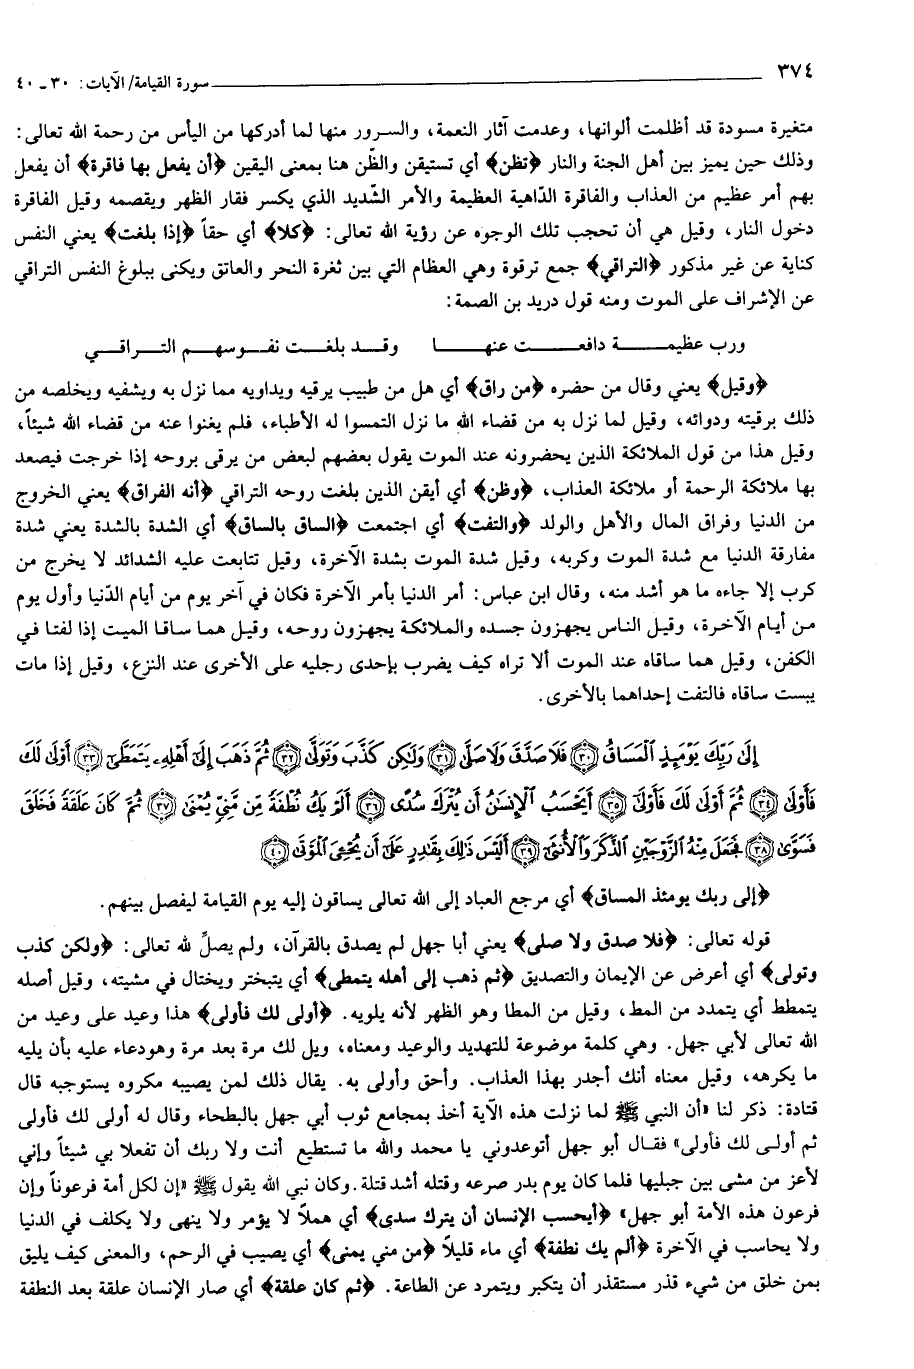 ٣٧٤ سورة القيامة/ الآيات: ٣٠ ـ ٤٠
متغيرة مسودة قد أظلمت ألوانها، وعدمت آثار النعمة، والسرور منها لما أدركها من اليأس من رحمة الله تعالى:
وذلك حين يميز بين أهل الجنة والنار ﴿تظن﴾ أي تستيقن والظّن هنا بمعنى اليقين ﴿أن يفعل بها فاقرة﴾ أن يفعل
بهم أمر عظيم من العذاب والفاقرة الدّاهية العظيمة والأمر الشّديد الذي يكسر فقار الظهر ويقصمه وقيل الفاقرة
دخول النار، وقيل هي أن تحجب تلك الوجوه عن رؤية الله تعالى: ﴿كلا﴾ أي حقاً ﴿إذا بلغت﴾ يعني النفس
كناية عن غير مذكور ﴿التراقي﴾ جمع ترقوة وهي العظام التي بين ثغرة النحر والعاتق ويكنى ببلوغ النفس التراقي
عن الإشراف على الموت ومنه قول دريد بن الصمة:
ورب عظيمة دافعت عنها وقد بلغت نفوسهم التراقي
﴿وقيل﴾ يعني وقال من حضره ﴿من راق﴾ أي هل من طبيب يرقيه ويداويه مما نزل به ويشفيه ويخلصه من
ذلك برقيته ودوائه، وقيل لما نزل به من قضاء الله ما نزل التمسوا له الأطباء، فلم يغنوا عنه من قضاء الله شيئاً،
وقيل هذا من قول الملائكة الذين يحضرونه عند الموت يقول بعضهم لبعض من يرقى بروحه إذا خرجت فيصعد
بها ملائكة الرحمة أو ملائكة العذاب، ﴿وظن﴾ أي أيقن الذين بلغت روحه التراقي ﴿أنه الفراق﴾ يعني الخروج
من الدنيا وفراق المال والأهل والولد ﴿والتفت﴾ أي اجتمعت ﴿الساق بالساق﴾ أي الشدة بالشدة يعني شدة
مفارقة الدنيا مع شدة الموت وكربه، وقيل شدة الموت بشدة الآخرة، وقيل تتابعت عليه الشدائد لا يخرج من
كرب إلا جاءه ما هو أشد منه، وقال ابن عباس: أمر الدنيا بأمر الآخرة فكان في آخر يوم من أيام الدّنيا وأول يوم
من أيام الآخرة، وقيل الناس يجهزون جسده والملائكة يجهزون روحه، وقيل هما ساقا الميت إذا لفتا في
الكفن، وقيل هما ساقاه عند الموت ألا تراه كيف يضرب بإحدى رجليه على الأخرى عند النزع، وقيل إذا مات
يبست ساقاه فالتفت إحداهما بالأخرى.
إِلَىٰ رَبِّكَ يَوْمَئِذٍ ٱلْمَسَاقُ ﴿٣٠﴾ فَلَا صَدَّقَ وَلَا صَلَّىٰ ﴿٣١﴾ وَلَٰكِن كَذَّبَ وَتَوَلَّىٰ ﴿٣٢﴾ ثُمَّ ذَهَبَ إِلَىٰٓ أَهْلِهِۦ يَتَمَطَّىٰٓ ﴿٣٣﴾ أَوْلَىٰ لَكَ
فَأَوْلَىٰ ﴿٣٤﴾ ثُمَّ أَوْلَىٰ لَكَ فَأَوْلَىٰٓ ﴿٣٥﴾ أَيَحْسَبُ ٱلْإِنسَٰنُ أَن يُتْرَكَ سُدًى ﴿٣٦﴾ أَلَمْ يَكُ نُطْفَةً مِّن مَّنِىٍّ يُمْنَىٰ ﴿٣٧﴾ ثُمَّ كَانَ عَلَقَةً فَخَلَقَ
فَسَوَّىٰ ﴿٣٨﴾ فَجَعَلَ مِنْهُ ٱلزَّوْجَيْنِ ٱلذَّكَرَ وَٱلْأُنثَىٰٓ ﴿٣٩﴾ أَلَيْسَ ذَٰلِكَ بِقَٰدِرٍ عَلَىٰٓ أَن يُحْـِۧىَ ٱلْمَوْتَىٰ ﴿٤٠﴾
﴿إلى ربك يومئذ المساق﴾ أي مرجع العباد إلى الله تعالى يساقون إليه يوم القيامة ليفصل بينهم.
قوله تعالى: ﴿فلا صدق ولا صلى﴾ يعني أبا جهل لم يصدق بالقرآن، ولم يصلِّ لله تعالى: ﴿ولكن كذب
وتولى﴾ أي أعرض عن الإيمان والتصديق ﴿ثم ذهب إلى أهله يتمطى﴾ أي يتبختر ويختال في مشيته، وقيل أصله
يتمطط أي يتمدد من المط، وقيل من المطا وهو الظهر لأنه يلويه. ﴿أولى لك فأولى﴾ هذا وعيد على وعيد من
الله تعالى لأبي جهل. وهي كلمة موضوعة للتهديد والوعيد ومعناه، ويل لك مرة بعد مرة وهودعاء عليه بأن يليه
ما يكرهه، وقيل معناه أنك أجدر بهذا العذاب. وأحق وأولى به. يقال ذلك لمن يصيبه مكروه يستوجبه قال
قتادة: ذكر لنا «أن النبي ﷺ لما نزلت هذه الآية أخذ بمجامع ثوب أبي جهل بالبطحاء وقال له أولى لك فأولى
ثم أولى لك فأولى» فقال أبو جهل أتوعدوني يا محمد والله ما تستطيع أنت ولا ربك أن تفعلا بي شيئاً وإني
لأعز من مشى بين جبليها فلما كان يوم بدر صرعه وقتله أشد قتلة. وكان نبي الله يقول ﷺ «إن لكل أمة فرعوناً وإن
فرعون هذه الأمة أبو جهل» ﴿أيحسب الإنسان أن يترك سدى﴾ أي هملاً لا يؤمر ولا ينهى ولا يكلف في الدنيا
ولا يحاسب في الآخرة ﴿ألم يك نطفة﴾ أي ماء قليلاً ﴿من مني يمنى﴾ أي يصيب في الرحم، والمعنى كيف يليق
بمن خلق من شيء قذر مستقذر أن يتكبر ويتمرد عن الطاعة. ﴿ثم كان علقة﴾ أي صار الإنسان علقة بعد النطفة